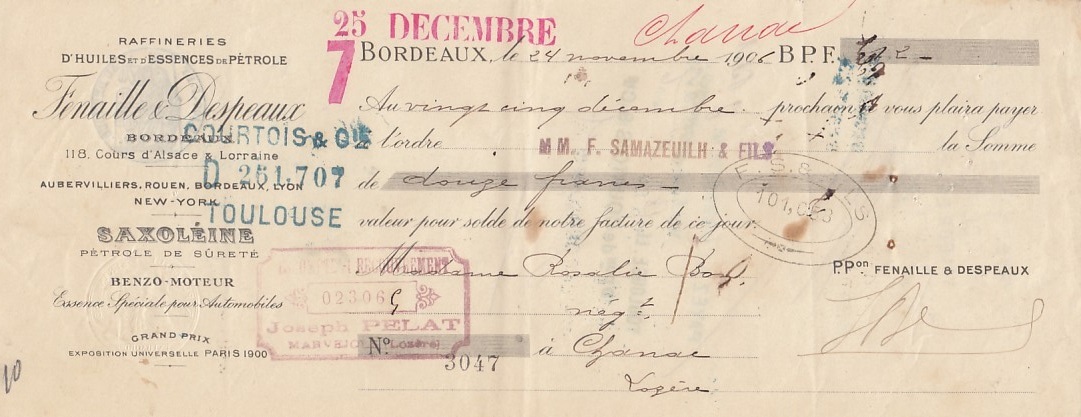 RAFFINERIES
D'HUILES ET D'ESSENCES DE PÉTROLE
Fenaille & Despeaux
BORDEAUX
118, Cours d'Alsace & Lorraine
AUBERVILLIERS, ROUEN, BORDEAUX, LYON
NEW-YORK
SAXOLÉINE
PÉTROLE DE SÛRETÉ
BENZO-MOTEUR
Essence Spéciale pour Automobiles
GRAND PRIX
EXPOSITION UNIVERSELLE PARIS 1900
10
COURTOIS & Cie
D 261.707
TOULOUSE
25 DECEMBRE
7
Chanac
BORDEAUX, le 24 novembre 1906 B.P.F. 12-
Au vingt cinq décembre prochain il vous plaira payer
à l'ordre MM. F. SAMAZEUILH & FILS la Somme
de douze francs
valeur pour solde de notre facture de ce jour.
F. S. & FILS
101,083
Madame Rosalie
négte
à Chanac
Lozère
P.Pon FENAILLE & DESPEAUX
RECOUVREMENT
02306
Joseph PELAT
MARVEJOLS (Lozère)
No 3047